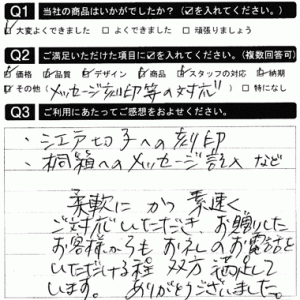 Q1 当社の商品はいかがでしたか？（☑を入れてください。）
☑ 大変よくできました □ よくできました □ 頑張りましょう
Q2 ご満足いただけた項目に☑を入れてください。（複数回答可）
☑ 価格 ☑ 品質 ☑ デザイン ☑ 商品 ☑ スタッフの対応 ☑ 納期
☑ その他（メッセージ刻印等の対応） □ 特になし
Q3 ご利用にあたってご感想をおよせください。
・江戸切子への刻印
・桐箱へのメッセージ記入 など
柔軟に かつ 素速く
ご対応いただき、お贈りした
お客様からも お礼のお電話を
いただける程 双方 満足して
います。 ありがとうございました。